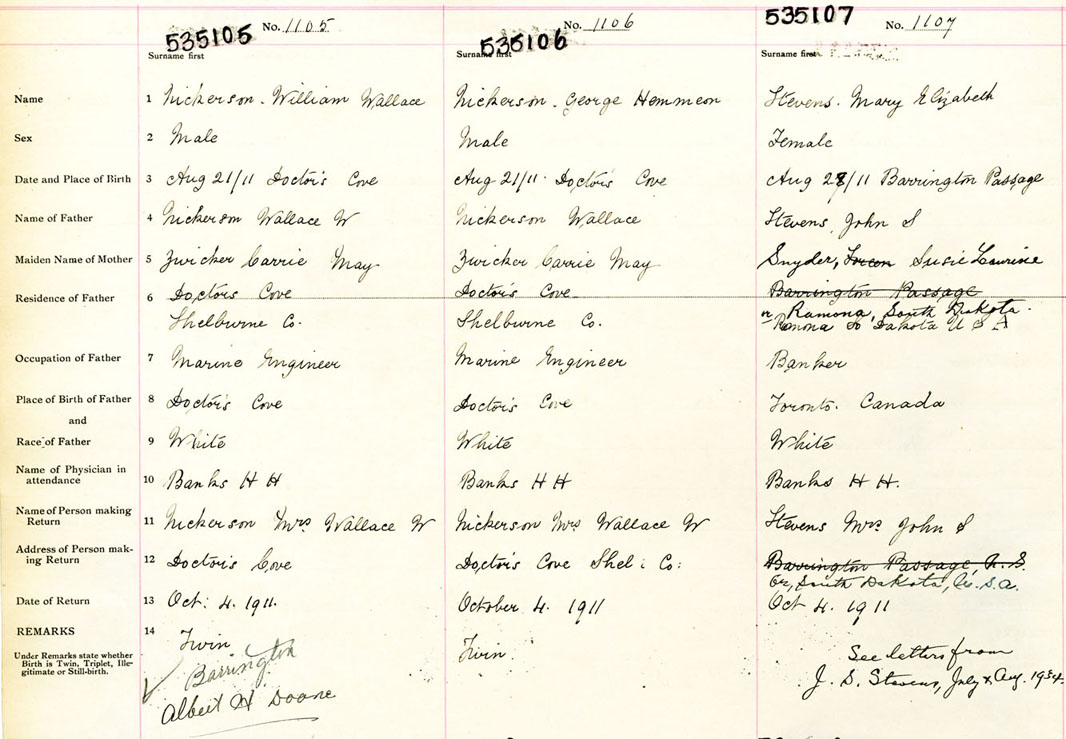 535105 No. 1105 535106 No. 1106 535107 No. 1107
Surname first Surname first Surname first
Name 1 Nickerson. William Wallace Nickerson. George Hemmeon Stevens. Mary Elizabeth
Sex 2 Male Male Female
Date and Place of Birth 3 Aug 21/11 Doctor's Cove Aug 21/11. Doctor's Cove Aug 28/11 Barrington Passage
Name of Father 4 Nickerson Wallace W Nickerson Wallace Stevens, John S
Maiden Name of Mother 5 Zwicker Carrie May Zwicker Carrie May Snyder, Susie Laurine
Residence of Father 6 Doctor's Cove Doctor's Cove Barrington Passage
Shelburne Co. Shelburne Co. or Ramona, South Dakota.
Ramona So Dakota U S A
Occupation of Father 7 Marine Engineer Marine Engineer Banker
Place of Birth of Father 8 Doctor's Cove Doctor's Cove Toronto. Canada
and
Race of Father 9 White White White
Name of Physician in
attendance 10 Banks H H Banks H H Banks H H.
Name of Person making
Return 11 Nickerson Mrs Wallace W Nickerson Mrs Wallace W Stevens Mrs John S
Address of Person mak-
ing Return 12 Doctor's Cove Doctor's Cove Shel: Co: Barrington Passage, N. S.
or, South Dakota, U.S.A.
Date of Return 13 Oct: 4. 1911. October 4. 1911 Oct 4. 1911
REMARKS 14 Twin Twin. See letters from
Under Remarks state whether
Birth is Twin, Triplet, Ille-
gitimate or Still-birth.
J. S. Stevens, July & Aug. 1934.
Barrington
Albert H Doane